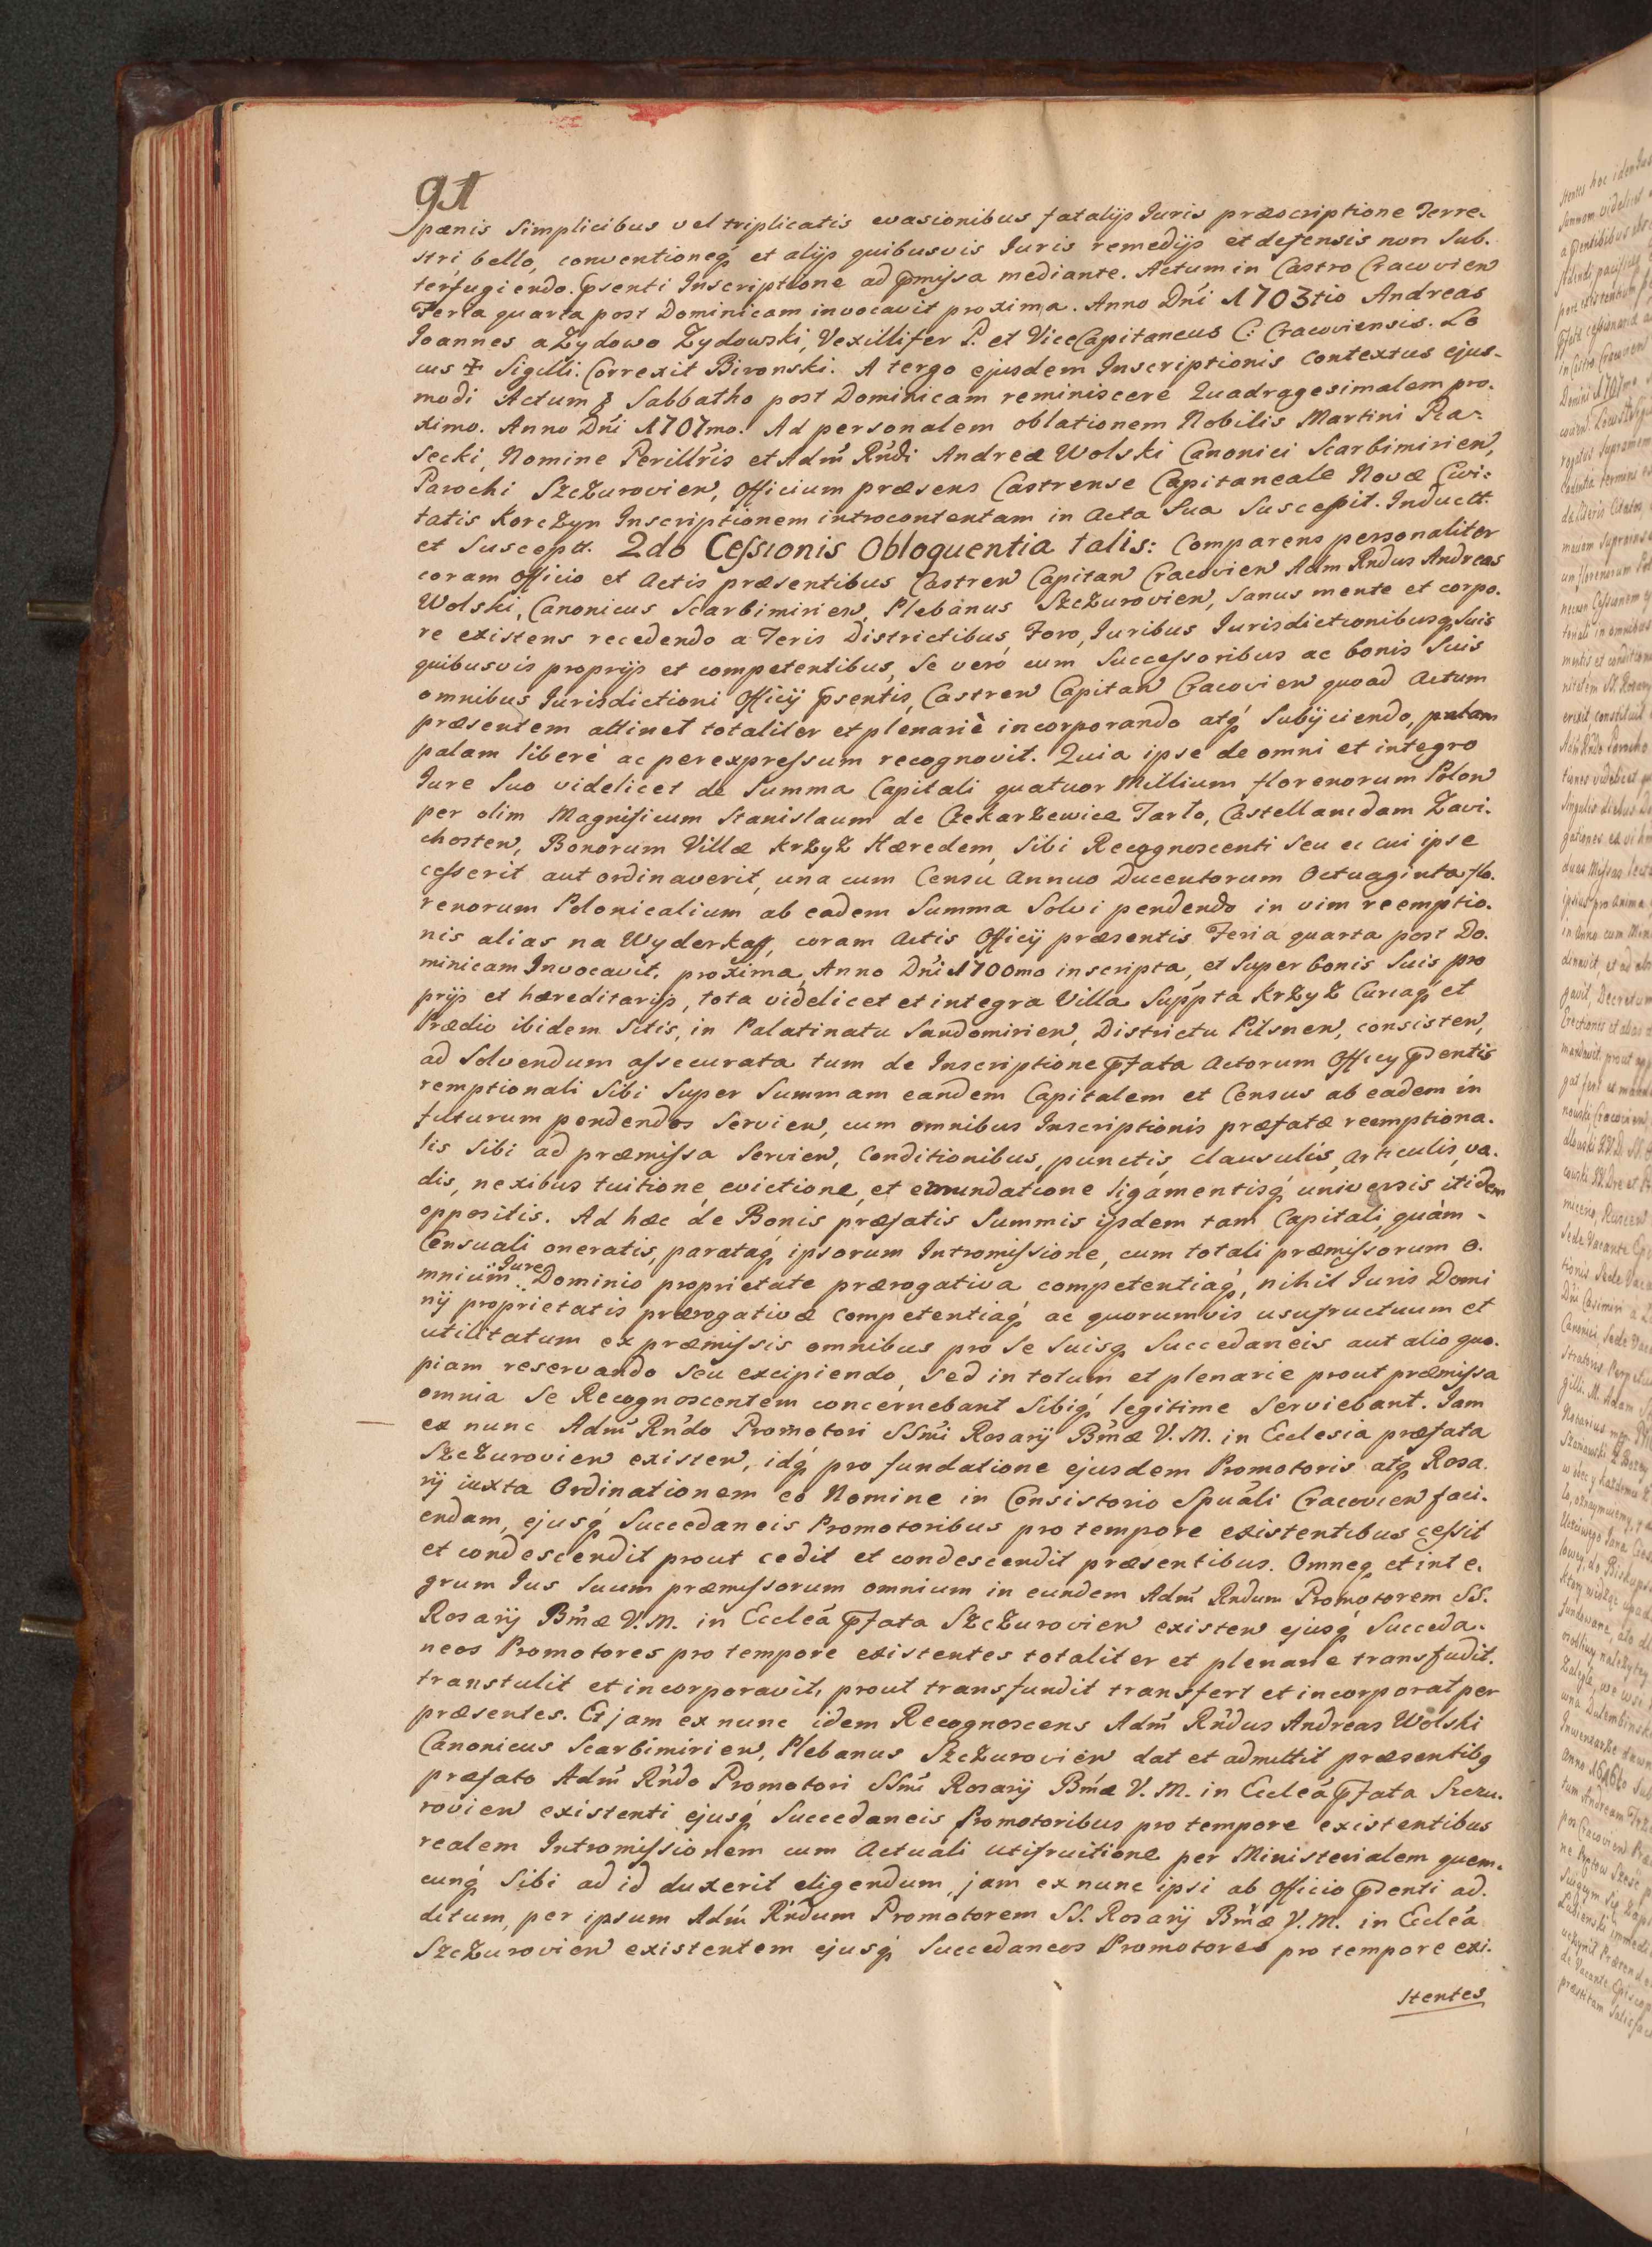 91
pænis simplicibus vel triplicatis evasionibus fatalijs Iuris præscriptione Terre-
stri bello, conventioneq́ et alijs quibusvis Iuris remedijs et defensis non Sub-
terfugiendo. p̄senti Inscriptione ad p̄missa mediante. Actum in Castro Cracovien
Feria quarta post Dominicam invocavit proxima. Anno Dńi 1703tio Andreas
Ioannes a Zydowo Zydowski, Vexillifer P. et ViceCapitaneus C: Cracoviensis. Lo
cus ✝ Sigilli. Correxit Bironski. A tergo ejusdem Inscriptionis contextus ejus-
modi Actum Sabbatho post Dominicam reminiscere Quadragesimalem pro-
ximo. Anno Dńi 1707mo. Ad personalem oblationem Nobilis Martini Pia-
secki, Nomine Perillris et Adḿ Rńdi Andreæ Wolski Canonici Scarbimirien,
Parochi SzcZurovien, Officium præsens Castrense Capitaneale Novæ Civi-
tatis KorcZyn Inscriptionem introcontentam in Acta Sua Suscepit. Inductt.
et Susceptt. 2do Cessionis Obloquentia talis: Comparens personaliter
coram Officio et Actis præsentibus Castren Capitan Cracovien Adm Rndus Andreas
Wolski, Canonicus Scarbimirien, Plebanus SzcZurovien, sanus mente et corpo-
re existens recedendo a Teris Districtibus, Foro, Iuribus Iurisdictionibusq́ Suis
quibusvis proprijs et competentibus, Se vero cum Successoribus ac bonis Suis
omnibus Iurisdictioni Officij p̄sentis, Castren Capitan Cracovien quoad Actum
præsentem attinet totaliter et plenariè incorporando atq́ Subijciendo, palam
palam liberè ac per expressum recognovit. Quia ipse de omni et integro
Iure Suo videlicet de Summa Capitali quatuor Millium florenorum Polon
per olim Magnificum Stanislaum de CzekarZewice Tarło, Castellanidam Zavi-
chosten, Bonorum Villæ KrZyZ Hæredem, Sibi Recognoscenti Seu ei cui ipse
cesserit aut ordinaverit, una cum Censu Annuo Ducentorum Octuaginta flo-
renorum Polonicalium ab eadem Summa Solvi pendendo in vim reemptio-
nis alias na Wyderkaff, coram Actis Officij præsentis Feria quarta post Do-
minicam Invocavit, proxima, Anno Dńi 1700mo inscripta, et Super bonis Suis pro
prijs et hæreditarijs, tota videlicet et integra Villa Suppta KrZyZ Curiaq́ et
Prædio ibidem Sitis, in Palatinatu Sandomirien, Districtu Pilsnen, consisten,
ad Solvendum assecurata tum de Inscriptione p̄fata Actorum Officy p̄sentis
remptionali Sibi Super Summam eandem Capitalem et Census ab eadem in
futurum pendendos Servien, cum omnibus Inscriptionis præfatæ reemptiona-
lis Sibi ad præmissa Servien, Conditionibus, punctis, clausulis, articulis, va-
dis, nexibus tuitione, evictione, et emundatione ligámentisq́ universis itidem
oppositis. Ad hæc de Bonis præfatis Summis ijsdem tam Capitali, quàm -
Censuali oneratis, parataq́ ipsorum Intromissione, cum totali præmissorum o-
mnium Iure Dominio proprietate prærogativa competentiaq́, nihil Iuris Domi
nij proprietatis prærogativæ competentiaq́ ac quorumvis usufructuum et
utilitatum ex præmissis omnibus pro Se Suisq́ Succedaneis aut alio quo-
piam reservando seu excipiendo, Sed in totum et plenarie prout præmissa
omnia Se Recognoscentem concernebant Sibiq́ legitime Serviebant. Iam
ex nunc Adḿ Rńdo Promotori SSmi Rosarij Bḿæ V. M. in Ecclesia præfata
SzcZurovien existen, idq́ pro fundatione ejusdem Promotoris atq́ Rosa-
rij iuxta Ordinationem eo Nomine in Consistorio Spuáli Cracovien faci-
endam, ejusq́ Succedaneis Promotoribus pro tempore existentibus cessit
et condescendit prout cedit et condescendit præsentibus. Omneq́ et inte-
grum Ius Suum præmissorum omnium in eundem Adḿ Rndum Promotorem SS.
Rosarij Bḿæ V. M. in Eccleá p̄fata SzcZurovien existen ejusq́ Succeda-
neos Promotores pro tempore existentes totaliter et plenarie transfudit.
transtulit et incorporavit, prout transfundit transfert et incorporat per
præsentes. Et jam ex nunc idem Recognoscens Adḿ Rńdus Andreas Wolski
Canonicus Scarbimirien, Plebanus SzcZurovien dat et admittit præsentibq
præfato Adḿ Rńdo Promotori SSmi Rosarij Bḿæ V. M. in Eccleá p̄fata Szczu-
rovien existenti ejusq́ Succedaneis Promotoribus pro tempore existentibus
realem Intromissionem cum Actuali utifruitione per Ministerialem quem-
cunq́ Sibi ad id duxerit eligendum, jam ex nunc ipsi ab Officio p̄senti ad-
ditum, per ipsum Adḿ Rńdum Promotorem SS. Rosarij Bḿæ V. M. in Eccleá
SzcZurovien existentem ejusq́ Succedaneos Promotores pro tempore exi-
stentes